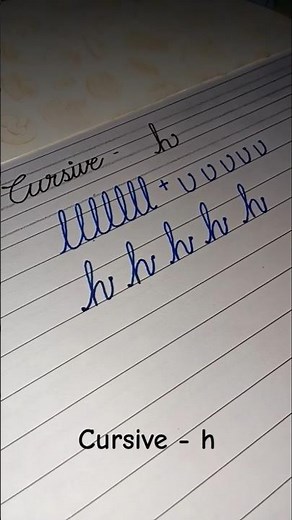 Cursive - h
lllllll + υ υ υ υ υ
h h h h h
Cursive - h